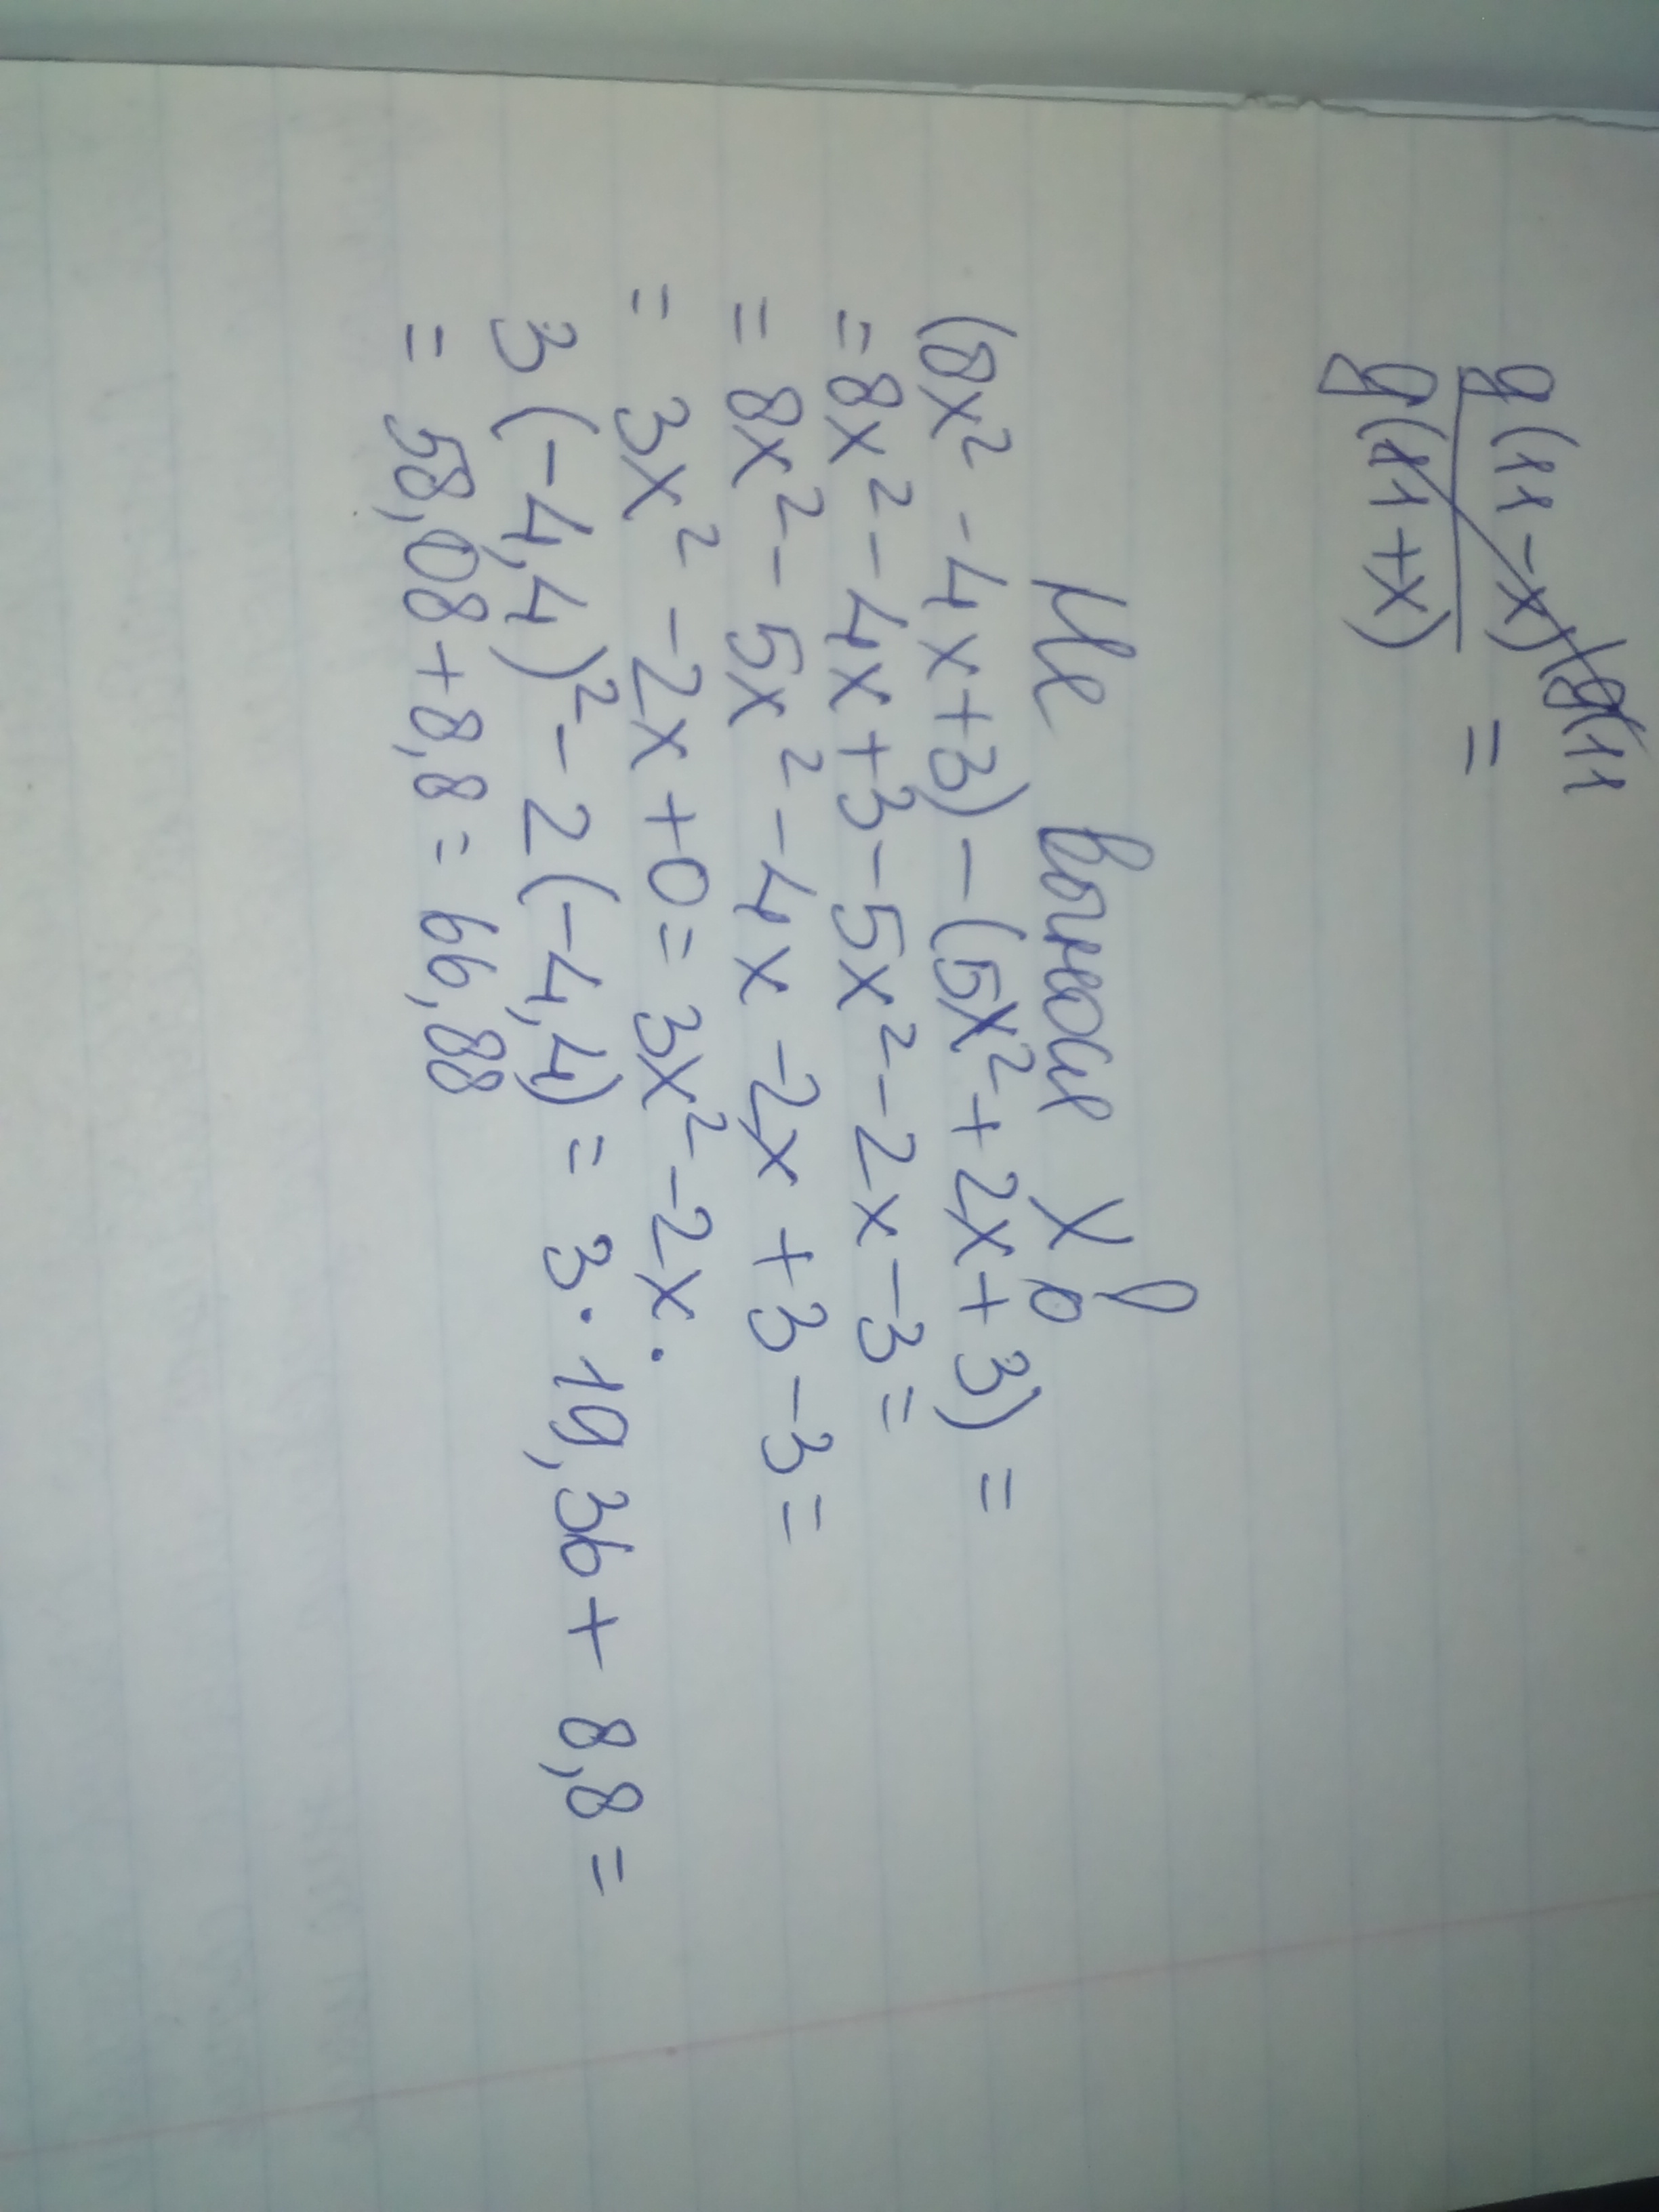 g(11-x)
g(11+x) =
Не выноси х
(8x² - 4x+3) - (5x² + 2x + 3) =
= 8x² - 4x + 3 - 5x² - 2x - 3 =
= 8x² - 5x² - 4x - 2x + 3 - 3 =
= 3x² - 2x + 0 = 3x² - 2x.
3(-4,4)² - 2(-4,4) = 3 · 19,36 + 8,8 =
= 58,08 + 8,8 = 66,88